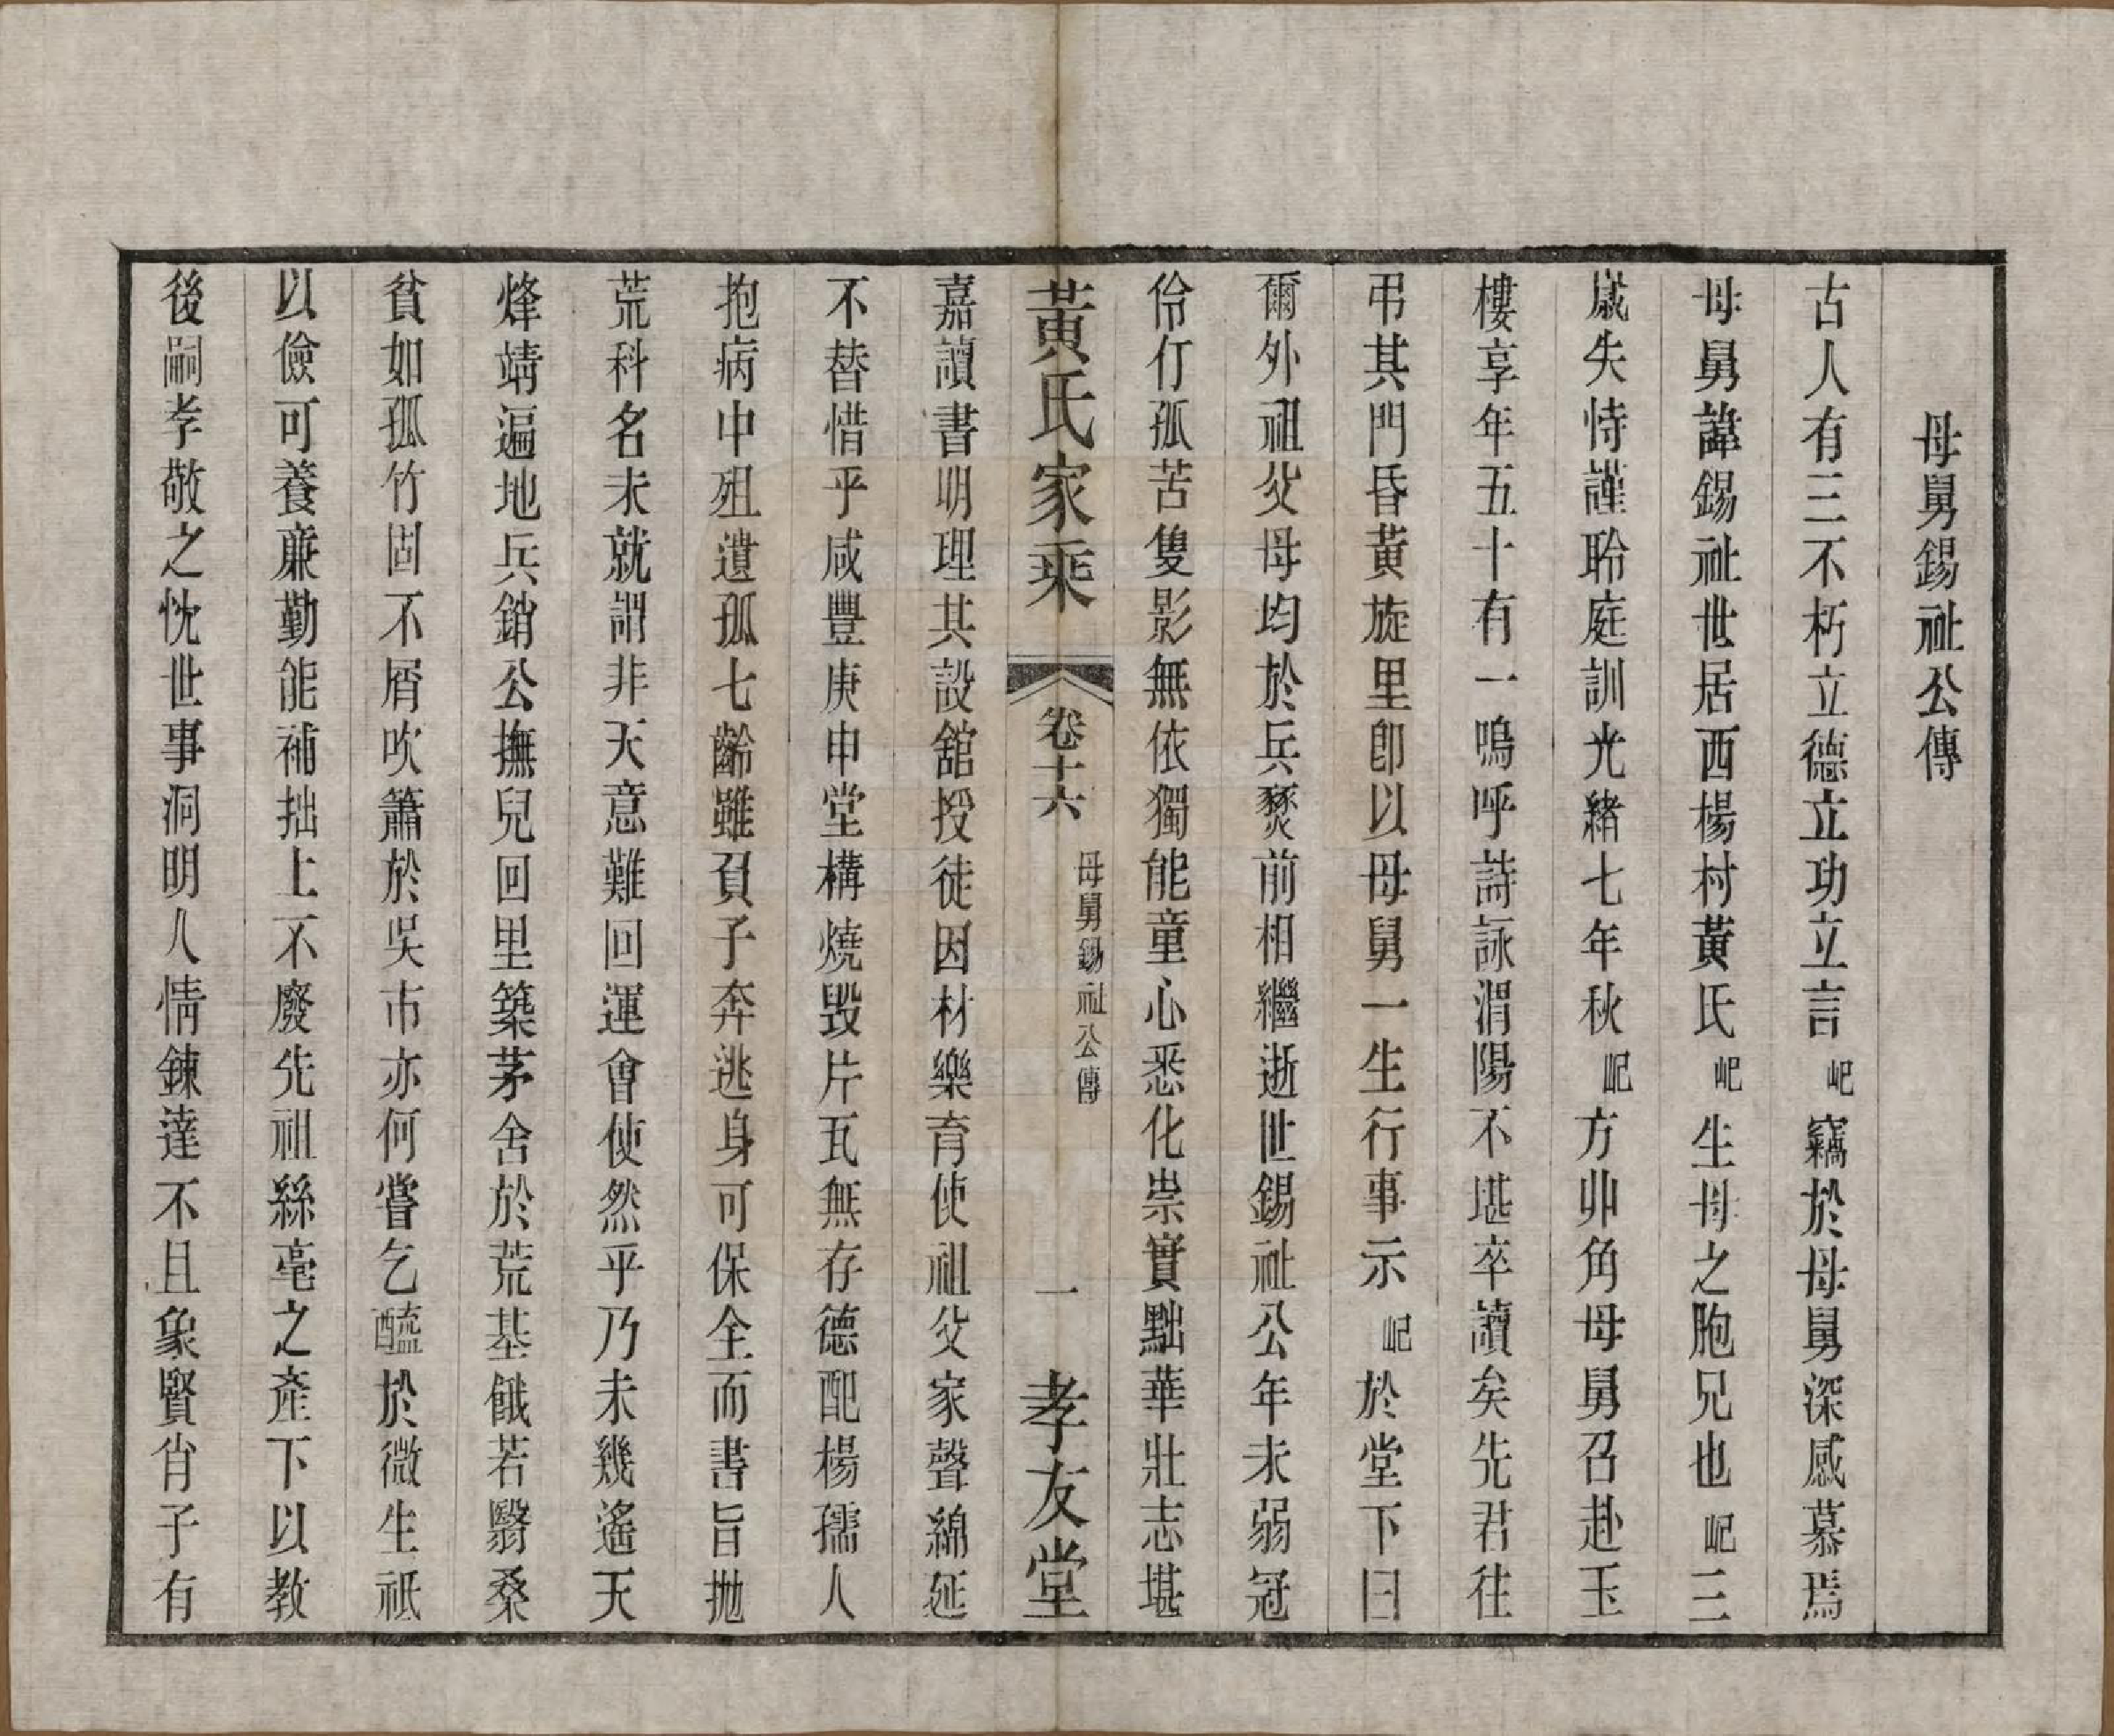 母舅錫祉公傳
古人有三不朽立德立功立言屺竊於母舅深感慕焉
母舅諱錫祉世居西楊村黃氏屺生母之胞兄也屺三
歲失恃謹聆庭訓光緒七年秋屺方丱角母舅召赴玉
樓享年五十有一嗚呼詩詠渭陽不堪卒讀矣先君往
弔其門昏黃旋里卽以母舅一生行事示屺於堂下曰
爾外祖父母均於兵燹前相繼逝世錫祉公年未弱冠
伶仃孤苦隻影無依獨能童心悉化崇實黜華壯志堪
黃氏家乘 卷十六 母舅錫祉公傳 一 孝友堂
嘉讀書明理其設舘授徒因材樂育使祖父家聲綿延
不替惜乎咸豐庚申堂構燒毀片瓦無存德配楊孺人
抱病中殂遺孤七齡雖負子奔逃身可保全而書旨拋
荒科名未就謂非天意難回運會使然乎乃未幾遙天
烽靖遍地兵銷公撫兒回里築茅舍於荒基餓若翳桑
貧如孤竹固不屑吹簫於吳市亦何嘗乞醯於微生祗
以儉可養廉勤能補拙上不廢先祖絲毫之產下以教
後嗣孝敬之忱世事洞明人情鍊達不且象賢肖子有